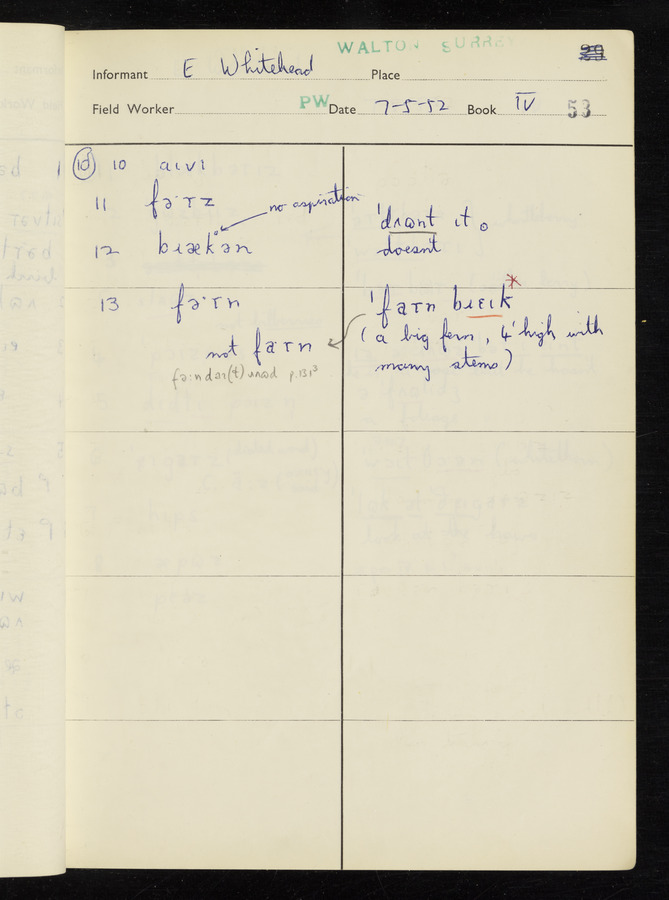 WALTON SURREY
Informant E Whitehead Place
Field Worker PW Date 7-5-52 Book IV 53
⑩ 10 aɪvɪ
11 fəːɹz
no aspiration
12 bɹækən
ˈdɹɒnt ɪt.
doesn't
13 fəːɹn
ˈfaɹn bɹeɪk*
not faɹn
(a big fern, 4' high with
many stems)
p.131³